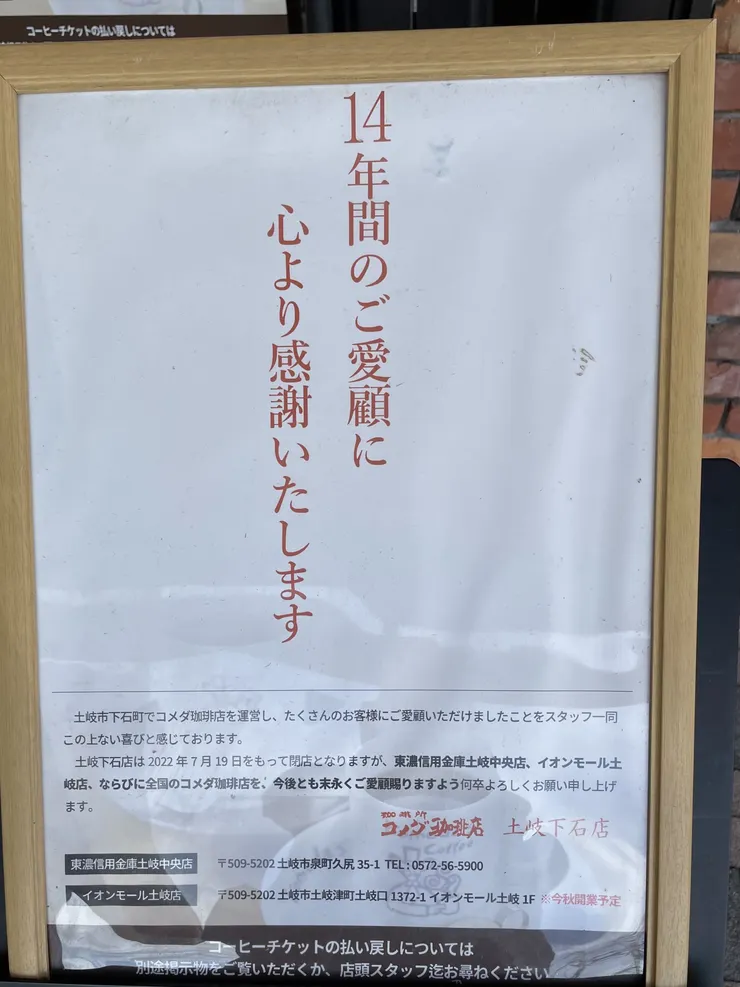 コーヒーチケットの払い戻しについては
14年間のご愛顧に
心より感謝いたします
土岐市下石町でコメダ珈琲店を運営し、たくさんのお客様にご愛顧いただけましたことをスタッフ一同
この上ない喜びと感じております。
土岐下石店は2022年7月19日をもって閉店となりますが、東濃信用金庫土岐中央店、イオンモール土
岐店、ならびに全国のコメダ珈琲店を、今後とも末永くご愛顧賜りますよう何卒よろしくお願い申し上げ
ます。
珈琲所
コメダ珈琲店 土岐下石店
東濃信用金庫土岐中央店 〒509-5202 土岐市泉町久尻35-1 TEL:0572-56-5900
イオンモール土岐店 〒509-5202 土岐市土岐津町土岐口1372-1 イオンモール土岐1F ※今秋開業予定
コーヒーチケットの払い戻しについては
別途掲示物をご覧いただくか、店頭スタッフ迄お尋ねください